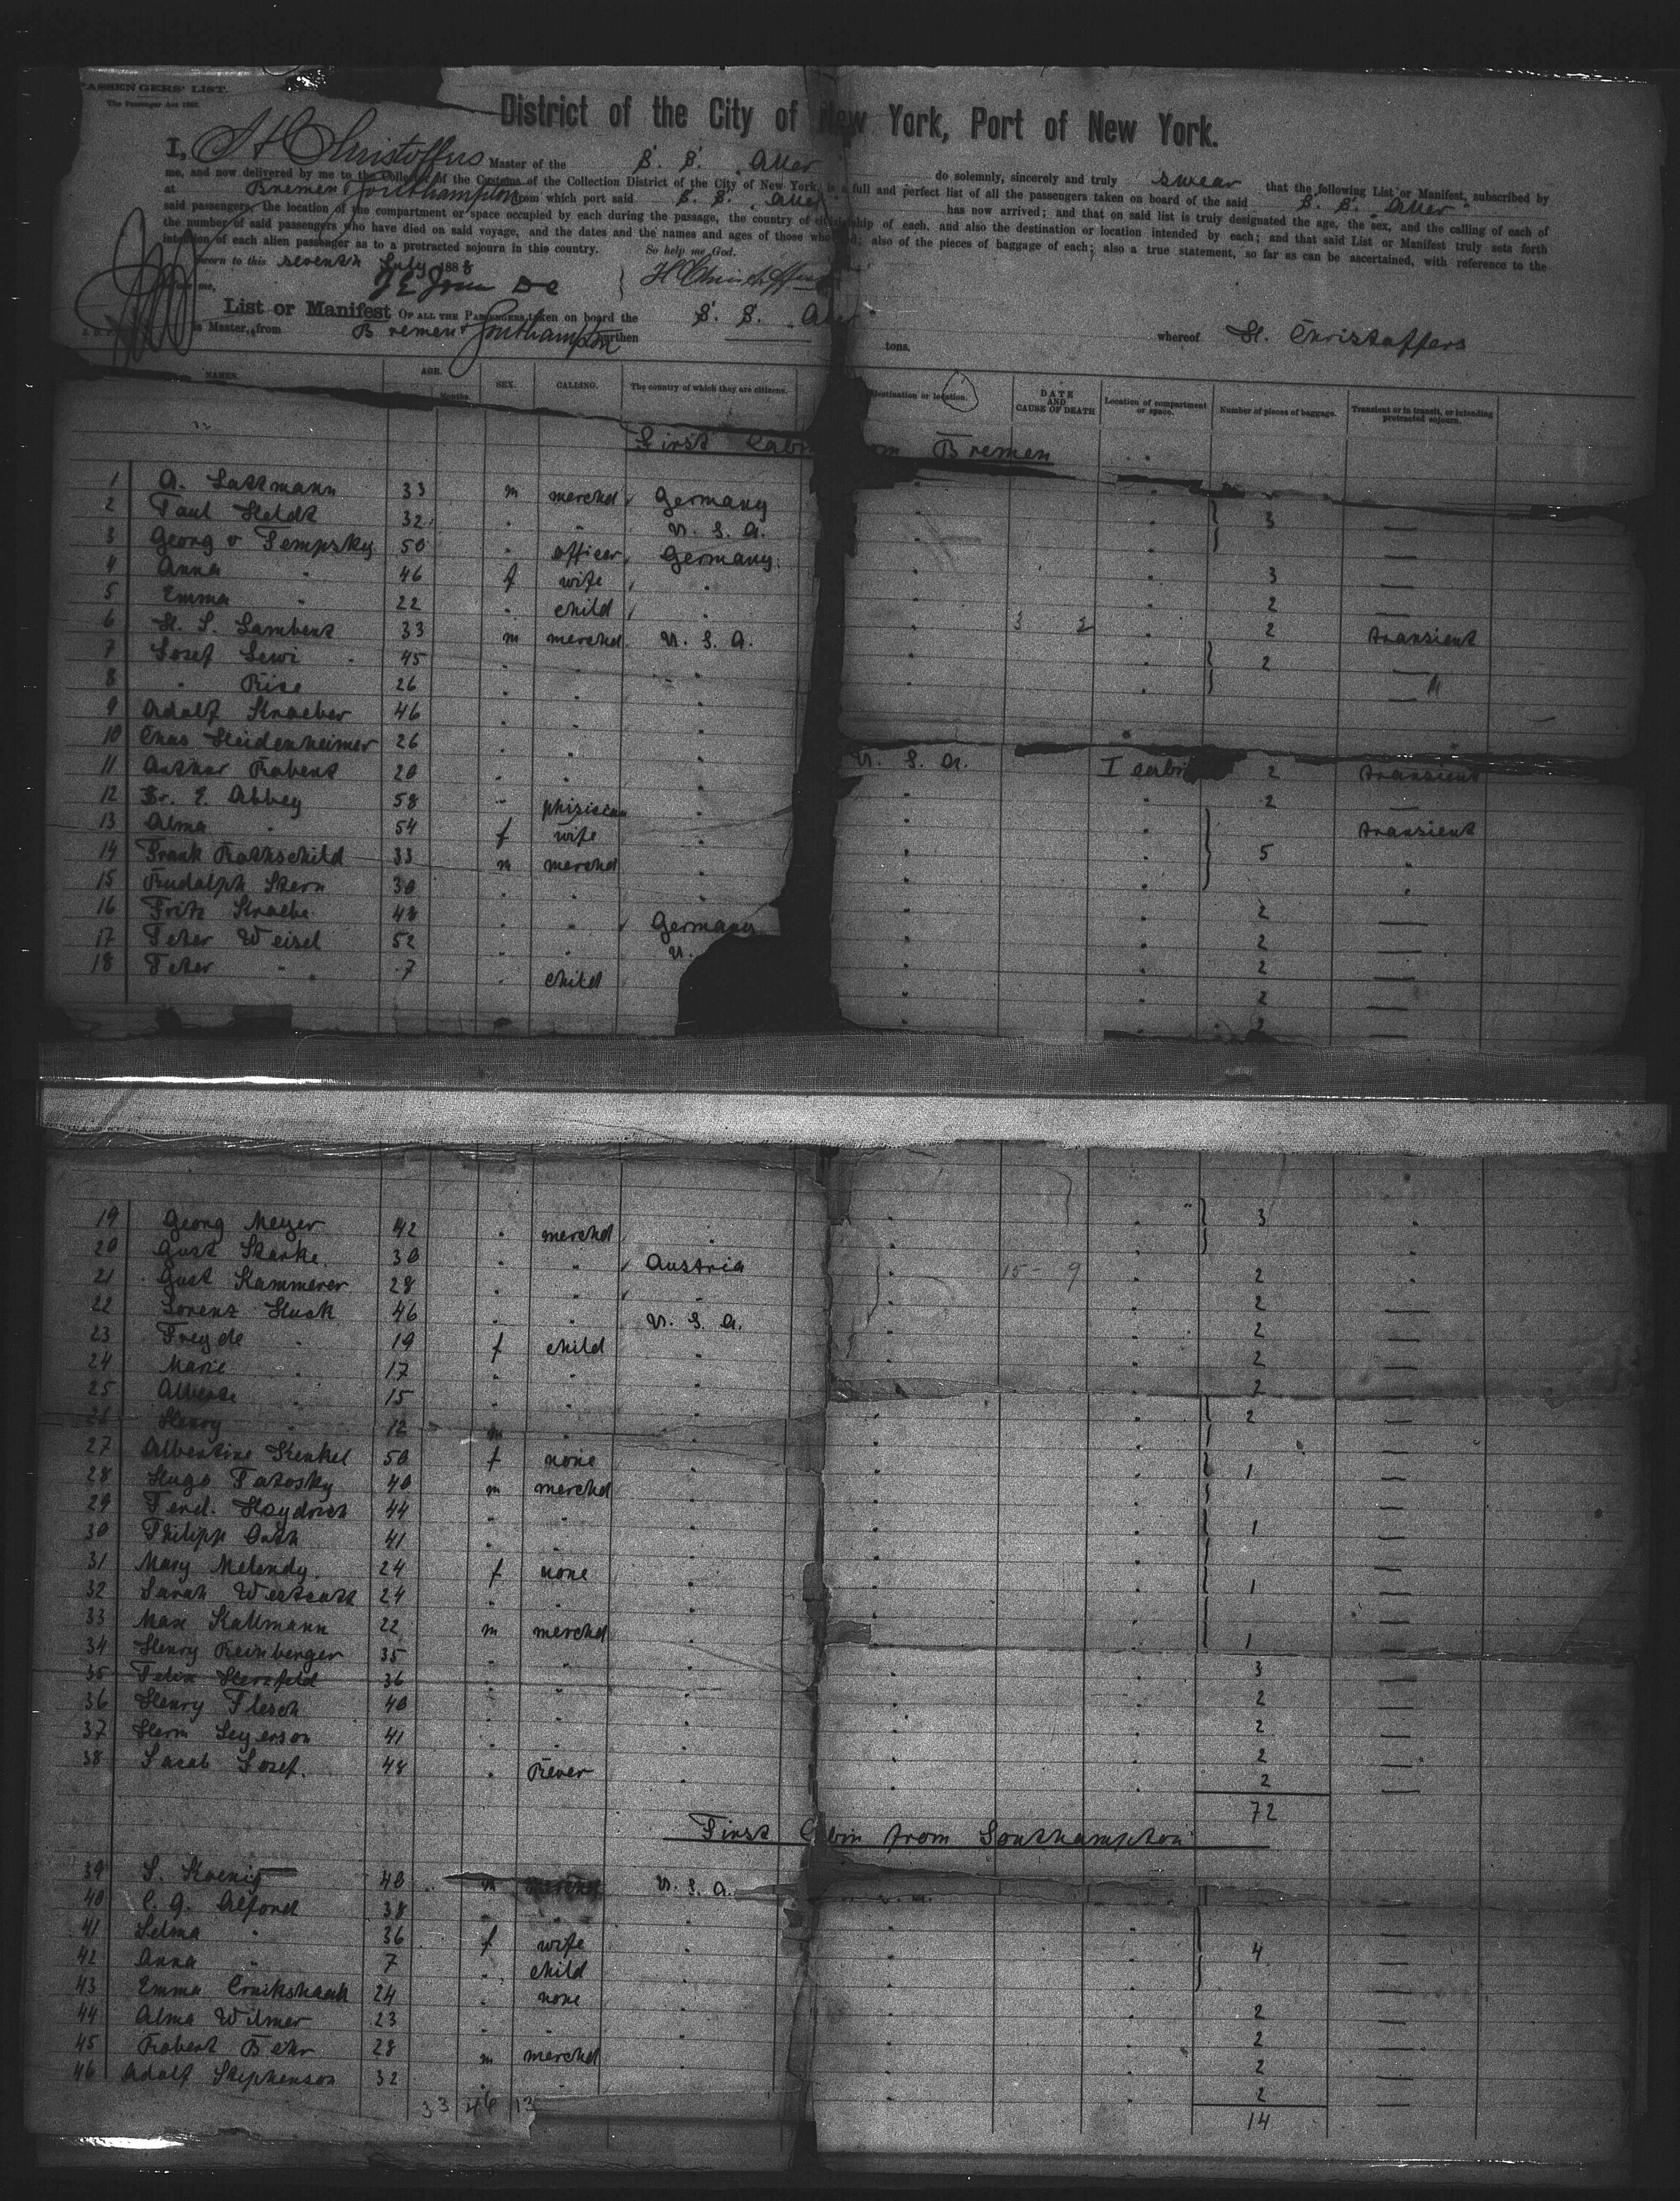 PASSENGERS' LIST.
The Passenger Act 1882.
District of the City of New York, Port of New York.
I, H Christoffers Master of the S. S. "Aller" do solemnly, sincerely and truly swear that the following List or Manifest, subscribed by
me, and now delivered by me to the Collector of the Customs of the Collection District of the City of New York, is a full and perfect list of all the passengers taken on board of the said S. S. "Aller"
at Bremen & Southampton from which port said S. S. "Aller" has now arrived; and that on said list is truly designated the age, the sex, and the calling of each of
said passengers, the location of the compartment or space occupied by each during the passage, the country of citizenship of each, and also the destination or location intended by each; and that said List or Manifest truly sets forth
the number of said passengers who have died on said voyage, and the dates and the names and ages of those who died; also of the pieces of baggage of each; also a true statement, so far as can be ascertained, with reference to the
intention of each alien passenger as to a protracted sojourn in this country. So help me God.
Sworn to this seventh July 1888
before me, H Christoffers
List or Manifest OF ALL THE PASSENGERS taken on board the S. S. "Aller"
is Master, from Bremen & Southampton burthen tons. whereof H. Christoffers
NAMES. AGE. Months. SEX. CALLING. The country of which they are citizens. Destination or location. DATE AND CAUSE OF DEATH Location of compartment or space. Number of pieces of baggage. Transient or in transit, or intending protracted sojourn.
First Cabin from Bremen
1 A. Lattmann 33 m merchd Germany
2 Paul Heldt 32 " " U. S. A. 3 —
3 Georg v Tempsky 50 " officer Germany
4 Anna " 46 f wife " 3 —
5 Emma " 22 " child " 2 —
6 H. S. Lambert 33 m merchd U. S. A. 3 2 2 transient
7 Josef Lewi 45 " " " 2 —
8 " Rise 26 " " " —"
9 Adolf Kraeber 46 " " "
10 Chas Heidenheimer 26 " " "
11 Arthur Robert 20 " " " U. S. A. I cabin 2 transient
12 Dr. E. Abbey 58 " phisician " 2 —
13 Alma " 54 f wife " transient
14 Frank Rothschild 33 m merchd " 5 "
15 Rudolph Stern 30 " " " "
16 Fritz Kraebe 48 " " Germany 2 —
17 Peter Weisel 52 " " U. 2 —
18 Peter " 7 " child 2 —
2 —
2 —
19 Georg Meyer 42 " merchd " 3 "
20 Gust Starke 30 " " Austria "
21 Gust Kammerer 28 " " " 15 - 9 2 "
22 Lorenz Huck 46 " " U. S. A. 2 —
23 Freyde " 19 f child " 2 —
24 Marie " 17 " " " 2 —
25 " 15 " " " 2 —
26 Henry " 12 m " " 2 —
27 Albertine Henkel 50 f none "
28 Hugo Patosky 40 m merchd " 1 —
29 Ferd. Heydrich 44 " " "
30 Philipp 41 " " " 1 —
31 Mary Melendy 24 f none "
32 Sarah Westcott 24 " " " 1 —
33 Max Kallmann 22 m merchd " 1 —
34 Henry Reinberger 35 " " " 3 —
35 Felix Herzfeld 36 " " " 2 —
36 Henry Flesch 40 " " " 2 —
37 Herm Leyerson 41 " " " 2 —
38 Jacob Josef. 48 " " 2 —
72
First Cabin from Southampton
39 S. Koenig 40 m merchd U. S. A.
40 C. G. Alford 38 " " "
41 Selma " 36 f wife " 4 —
42 Anna " 7 " child "
43 Emma Cruikshank 24 " none " 2 —
44 Alma Wilmer 23 " " " 2 —
45 Robert Behr 28 m merchd " 2 —
46 Adolf Stephenson 32 " " " 2 —
33 46 13 14